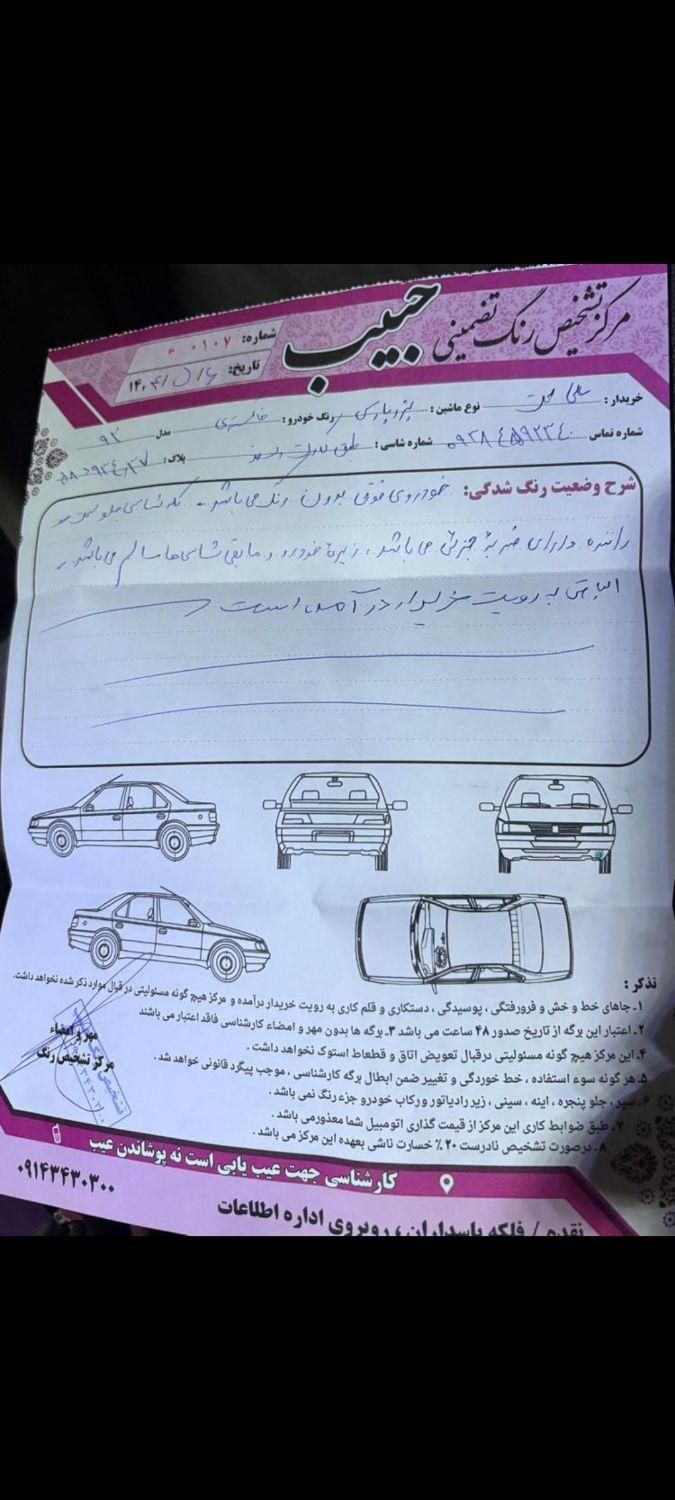 مرکز تشخیص رنگ تضمینی
حبیب
شماره: ۰۱۰۷
تاریخ: ۱۴۰۴/۵/۶
خریدار:
نوع ماشین: پژو پارس
رنگ خودرو: خاکستری
مدل ۹۳
شماره تماس
شماره شاسی: طبق کارت
پلاک:
شرح وضعیت رنگ شدگی: خودروی فوق بدون رنگ می باشد - شاسی جلو سمت
راننده دارای ضربه جزئی می باشد ، زیره خودرو و مابقی شاسی ها سالم می باشد
به رویت خریدار در آمده است
تذکر:
۱ـ جاهای خط و خش و فرورفتگی ، پوسیدگی ، دستکاری و قلم کاری به رویت خریدار درآمده و مرکز هیچ گونه مسئولیتی در قبال موارد ذکر شده نخواهد داشت.
۲ـ اعتبار این برگه از تاریخ صدور ۴۸ ساعت می باشد ۳ـ برگه ها بدون مهر و امضاء کارشناسی فاقد اعتبار می باشند
۴ـ این مرکز هیچ گونه مسئولیتی درقبال تعویض اتاق و قطعاط استوک نخواهد داشت .
۵ـ هر گونه سوء استفاده ، خط خوردگی و تغییر ضمن ابطال برگه کارشناسی ، موجب پیگرد قانونی خواهد شد .
۶ـ سپر ، جلو پنجره ، اینه ، سینی ، زیر رادیاتور و رکاب خودرو جزء رنگ نمی باشد .
۷ـ طبق ضوابط کاری این مرکز از قیمت گذاری اتومبیل شما معذور می باشد .
۸ـ درصورت تشخیص نادرست ۲۰٪ خسارت ناشی بعهده این مرکز می باشد .
مهر و امضاء
مرکز تشخیص رنگ
کارشناسی جهت عیب یابی است نه پوشاندن عیب
۰۹۱۴۳۴۳۰۳۰۰
نقده / فلکه پاسداران ، روبروی اداره اطلاعات